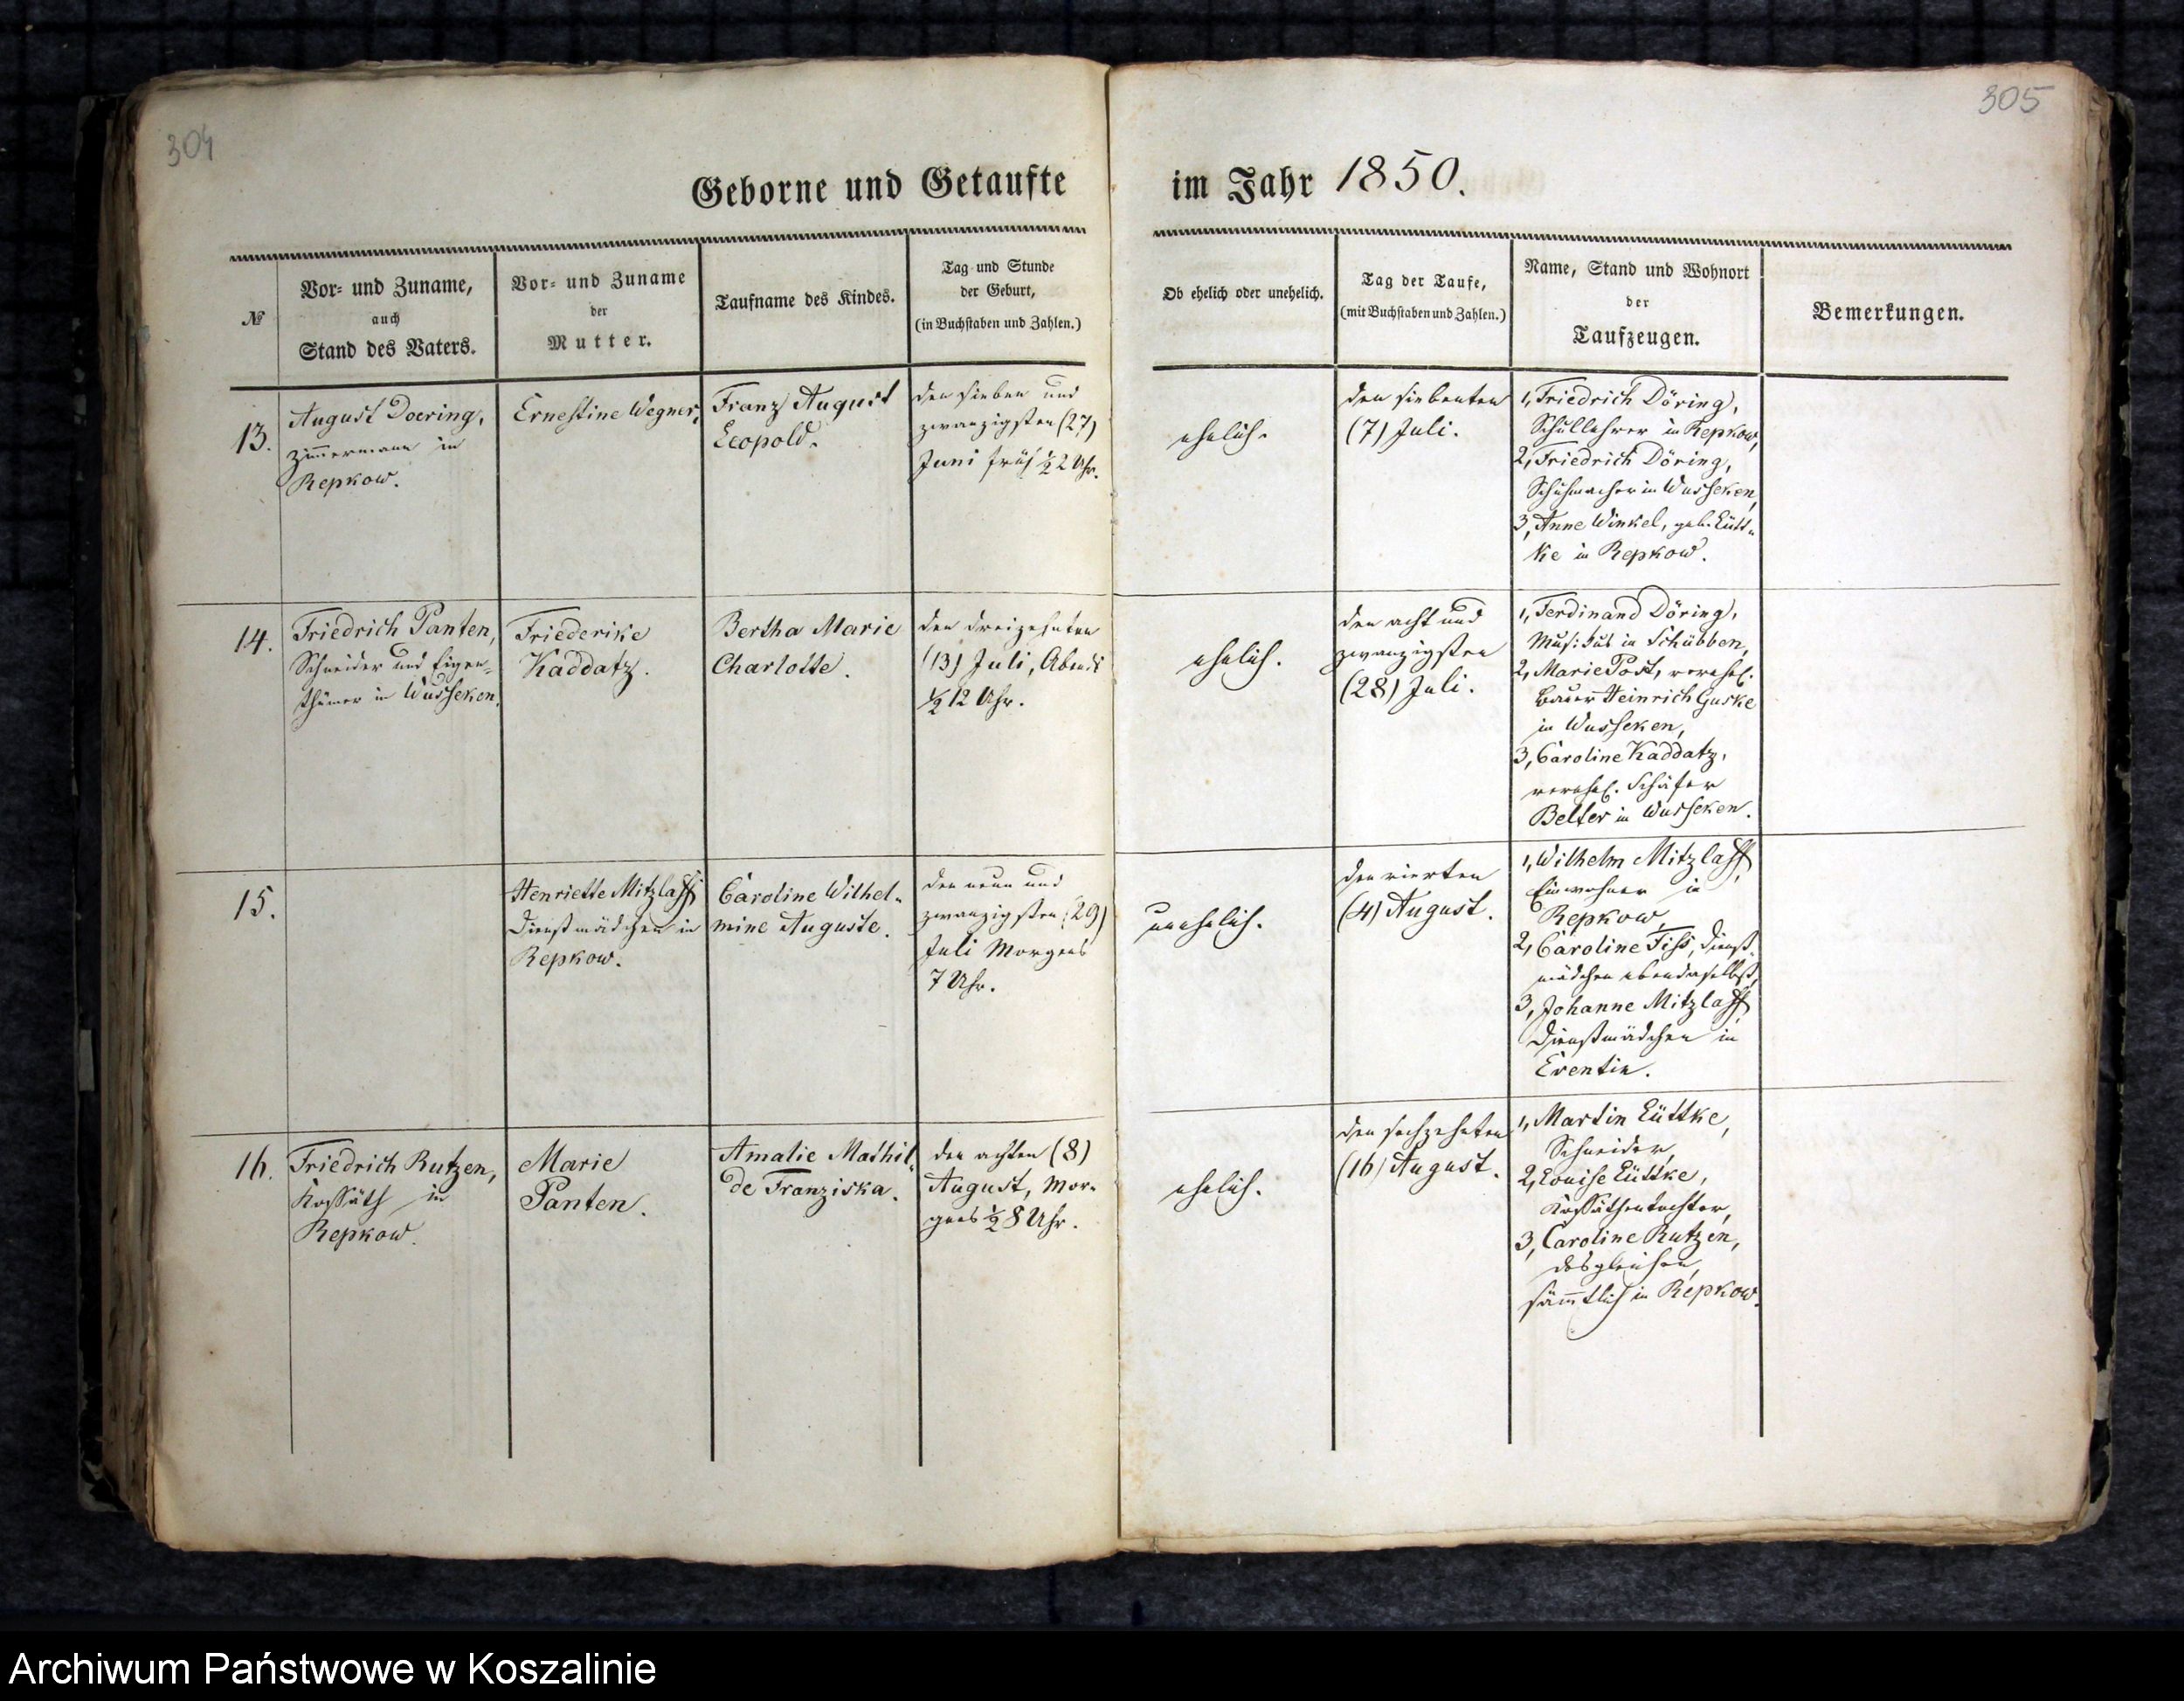 304
305
Geborne und Getaufte
im Jahr 1850.
№
Vor- und Zuname,
auch
Stand des Vaters.
Vor- und Zuname
der
Mutter.
Taufname des Kindes.
Tag und Stunde
der Geburt,
(in Buchstaben und Zahlen.)
Ob ehelich oder unehelich.
Tag der Taufe,
(mit Buchstaben und Zahlen.)
Name, Stand und Wohnort
der
Taufzeugen.
Bemerkungen.
13.
August Doering,
Zimmermann in
Repkow.
Ernestine Wegner,
Franz August
Leopold.
den sieben und
zwanzigsten (27)
Juni früh ½ 2 Uhr.
ehelich.
den siebenten
(7) Juli.
1, Friedrich Döring,
Schullehrer in Repkow,
2, Friedrich Döring,
Schuhmacher in Wusseken,
3, Anne Winkel, geb. Lütt-
ke in Repkow.
14.
Friedrich Panten,
Schneider und Eigen-
thümer in Wusseken.
Friederike
Kaddatz.
Bertha Marie
Charlotte.
den dreizehnten
(13) Juli, Abends
½ 12 Uhr.
ehelich.
den acht und
zwanzigsten
(28) Juli.
1, Ferdinand Döring,
Musikus in Schübben,
2, Marie Post, verehel.
Bauer Heinrich Guske
in Wusseken,
3, Caroline Kaddatz,
verehel. Schäfer
Belter in Wusseken.
15.
Henriette Mitzlaff,
Dienstmädchen in
Repkow.
Caroline Wilhel-
mine Auguste.
den neun und
zwanzigsten (29)
Juli Morgens
7 Uhr.
unehelich.
den vierten
(4) August.
1, Wilhelm Mitzlaff,
Einwohner in
Repkow,
2, Caroline Tiss, Dienst-
mädchen ebendaselbst,
3, Johanne Mitzlaff,
Dienstmädchen in
Eventin.
16.
Friedrich Rutzen,
Kossäth in
Repkow.
Marie
Panten.
Amalie Mathil-
de Franziska.
den achten (8)
August, Mor-
gens ½ 8 Uhr.
ehelich.
den sechzehnten
(16) August.
1, Martin Lüttke,
Schneider,
2, Louise Lüttke,
Kossäthentochter,
3, Caroline Rutzen,
desgleichen,
sämmtlich in Repkow.
Archiwum Państwowe w Koszalinie